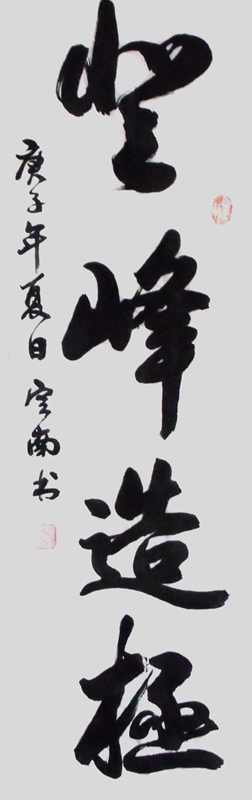 登峰造极
庚子年夏日云南书